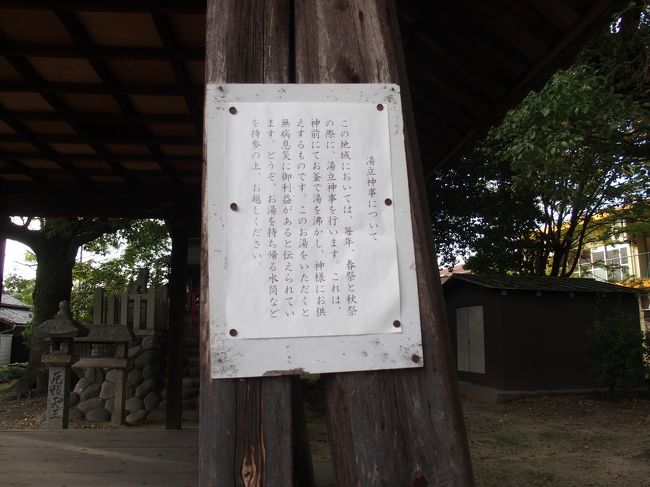 湯立神事について
この地域においては、毎年、春祭と秋祭
の際に、湯立神事を行います。これは、
神前にてお釜で湯を沸かし、神様にお供
えするものです。このお湯をいただくと
無病息災に御利益があると伝えられてい
ます。どうぞ、お湯を持ち帰る水筒など
を持参の上、お越しください。